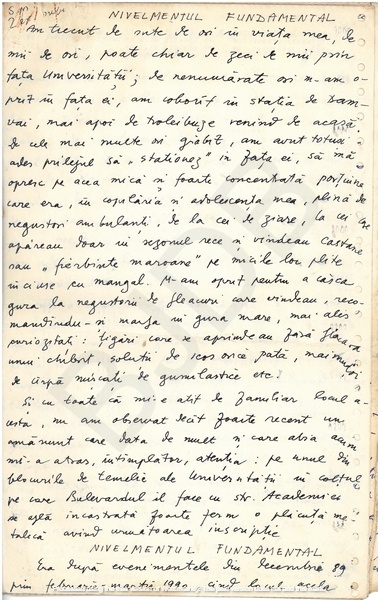 NIVELMENTUL FUNDAMENTAL
Am trecut de sute de ori în viața mea, de
mii de ori, poate chiar de zeci de mii prin
fața Universității; de nenumărate ori m-am o-
prit în fața ei, am coborît în stația de tram-
vai, mai apoi de troleibuze venind de acasă
de cele mai multe ori grăbit, am avut totuși
ades prilejul să „staționez" în fața ei, să mă
opresc pe acea mică și foarte concentrată porțiune
care era, în copilăria și adolescența mea, plină de
negustori ambulanți, de la cei de ziare, la cei care
apăreau doar în sezonul rece și vindeau castane
sau „fierbinte maroane" pe micile lor plite
încinse cu mangal. M-am oprit pentru a căsca
gura la negustorii de fleacuri care vindeau, reco-
mandîndu-și marfa în gura mare, mai ales
curiozități: țigări care se aprindeau fără flacăra
unui chibrit, soluții de scos orice pată, maimuțoi
de cîrpă mișcați de gumilastice etc.
Și cu toate că mi-e atît de familiar locul a-
cesta, nu am observat decît foarte recent un
amănunt care data de mult și care abia acum
mi-a atras, întîmplător, atenția: pe unul din
blocurile de temelie ale Universității în colțul
pe care Bulevardul îl face cu str. Academiei
se află incastrată foarte ferm o plăcuță me-
talică avînd următoarea inscripție
NIVELMENTUL FUNDAMENTAL
Era după evenimentele din decembrie 89
prin februarie-martie 1990 cînd locul acela